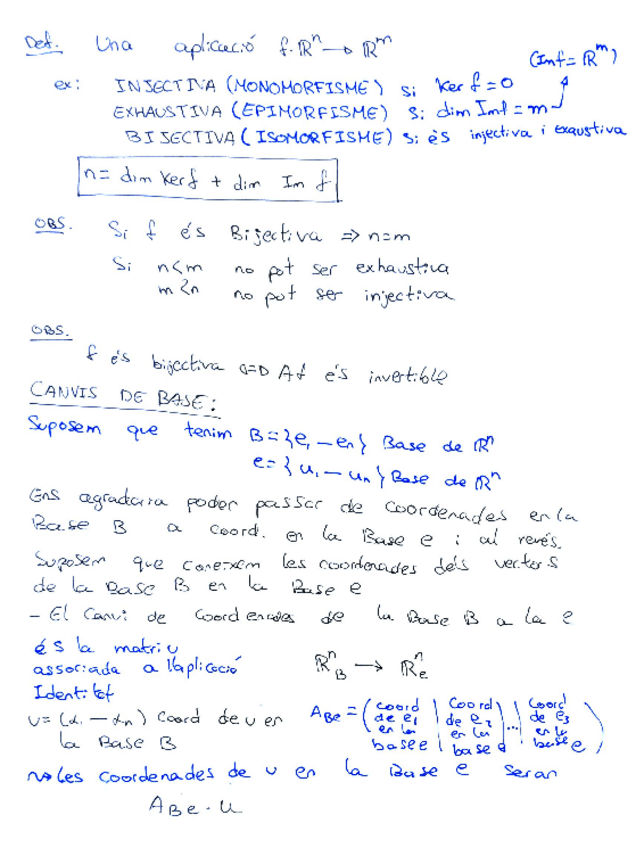 Def. Una aplicació f: ℝⁿ → ℝᵐ
(Imf = ℝᵐ)
ex: INJECTIVA (MONOMORFISME) si Ker f = 0
EXHAUSTIVA (EPIMORFISME) si dim Imf = m
BIJECTIVA (ISOMORFISME) si ès injectiva i exaustiva
n = dim Kerf + dim Im f
OBS. Si f és Bijectiva ⇒ n=m
Si n<m no pot ser exhaustiva
m<n no pot ser injectiva
OBS.
f és bijectiva ⇔ Af és invertible
CANVIS DE BASE:
Suposem que tenim B = {e₁ – en} Base de ℝⁿ
e = {u₁ – un} Base de ℝⁿ
Ens agradaria poder passar de coordenades en la
Base B a coord. en la Base e i al revés.
Suposem que coneixem les coordenades dels vectors
de la Base B en la Base e
– El Canvi de Coordenades de la Base B a la e
és la matriu
associada a l'aplicació ℝⁿ_B → ℝⁿ_e
Identitat
v = (α₁ – αn) Coord de v en la Base B
A_Be = (coord de e₁ en la base e | Coord de e₂ en la base e | ... | Coord de e₃ en la base e)
↝ Les coordenades de v en la Base e seran
A_Be · u